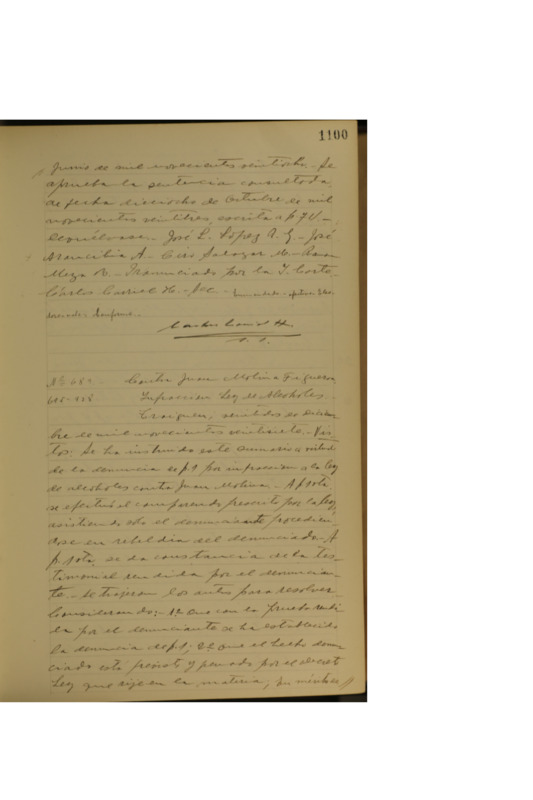 1100
Junio de mil novecientos veintiocho. Se
aprueba la sentencia consultada,
de fecha dieciocho de Octubre de mil
novecientos veintitres, escrita a f 7v.
Devuélvase. José L. López U. G. José
Arancibia A. Ciro Salazar M.
Meza R. Pronunciado por la I. Corte
Carlos Coniel H. Sec.
Conforme.
Nº 682. Contra Juan Molina Figueroa
Infraccion Ley de Alcoholes.
Traiguen, veintidos de Diciem
bre de mil novecientos veintisiete. Vis
tos: Se ha instruido este sumario a virtud
de la denuncia de f 1 por infraccion a la ley
de alcoholes contra Juan Molina. A f vta
se efectuó el comparendo prescrito por la ley,
asistiendo solo el denunciante procedien
dose en rebeldia del denunciado. A
f. vta, se da constancia de la tes
timonial rendida por el denuncian
te. Se trajeron los autos para resolver.
Considerando: 1º Que con la prueba rendi
da por el denunciante se ha establecido
la denuncia de f 1; 2º que el hecho denun
ciado está previsto y penado por el decreto
Ley que rije en la materia;